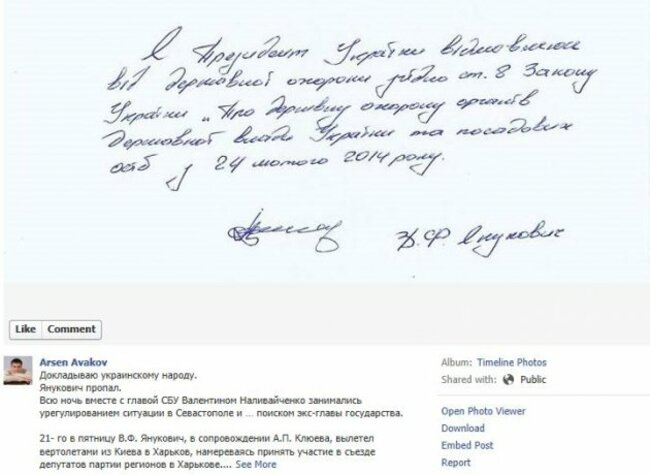 Я Президент України відмовляюся
від державної охорони згідно ст. 8 Закону
України „Про державну охорону органів
державної влади України та посадових
осіб з 24 лютого 2014 року.
В.Ф. Янукович
Like Comment
Arsen Avakov
Докладываю украинскому народу.
Янукович пропал.
Всю ночь вместе с главой СБУ Валентином Наливайченко занимались
урегулированием ситуации в Севастополе и ... поиском экс-главы государства.
21- го в пятницу В.Ф. Янукович, в сопровождении А.П. Клюева, вылетел
вертолетами из Киева в Харьков, намереваясь принять участие в съезде
депутатов партии регионов в Харькове.... See More
Album: Timeline Photos
Shared with: Public
Open Photo Viewer
Download
Embed Post
Report